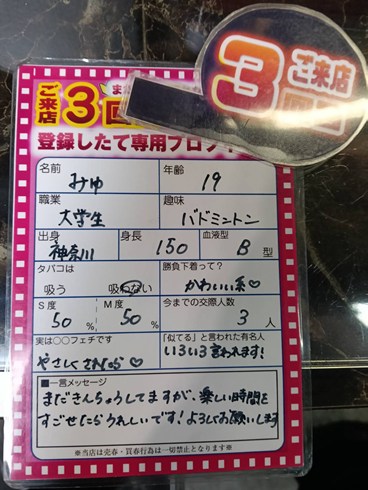 ご来店
3回
ご来店
3
登録したて専用プロフィ
名前
みゆ
年齢
19
職業
大学生
趣味
バドミントン
出身
神奈川
身長
150
血液型
B型
タバコは
吸う 吸わない
勝負下着って?
かわいい系♡
S度
50%
M度
50%
今までの交際人数
3人
実は〇〇フェチです
やさしくされたら♡
「似てる」と言われた有名人
いろいろ言われます!
■一言メッセージ
まだきんちょうしてますが、楽しい時間を
すごせたらうれしいです!よろしくお願いします
※当店は売春・買春行為は一切禁止となります※